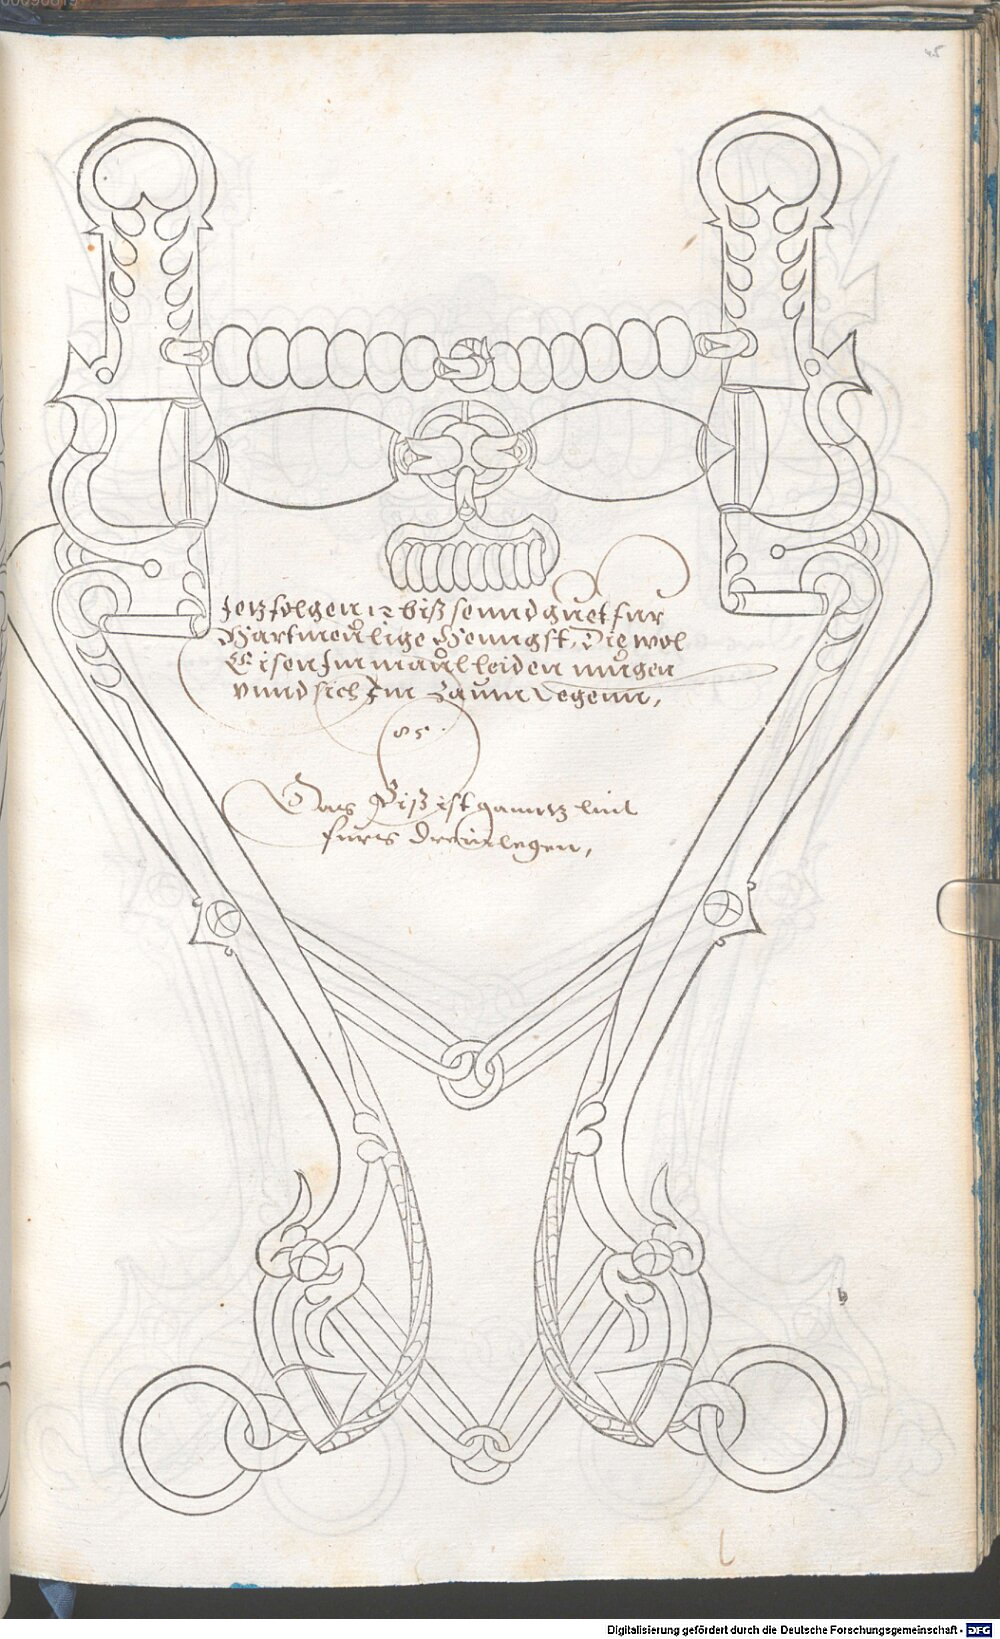 45
Jetz folgen 12 biß seund guet fur
Hartmeůlige Henngst, Die wol
Eisen Jm maůl leiden můgen
vnnd sich Jm Zaum Legenn,
85
Das Biß ist ganntz lint
furs Dreinlegen,
b
Digitalisierung gefördert durch die Deutsche Forschungsgemeinschaft - DFG